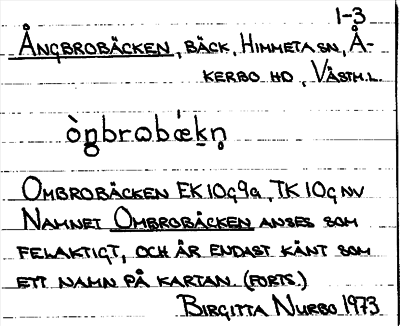 1-3
ÅNGBROBÄCKEN, BÄCK, HIMMETA SN, Å-
KERBO HD, VÄSTM.L.
òn̲g̲brωbǽk̲n̥
OMBROBÄCKEN EK 10G9a, TK 10G NV
NAMNET OMBROBÄCKEN ANSES SOM
FELAKTIGT, OCH ÄR ENDAST KÄNT SOM
ETT NAMN PÅ KARTAN. (FORTS.)
BIRGITTA NURBO 1973